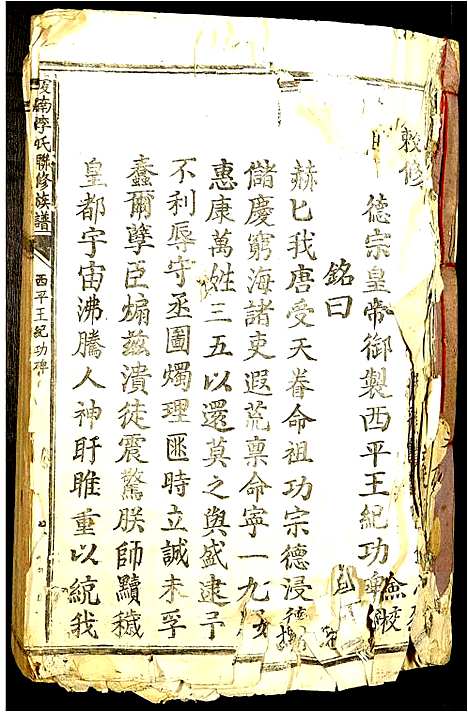 敕修
德宗皇帝御製西平王紀功碑
銘曰
赫匕我唐受天眷命祖功宗德浸
儲慶窮海諸吏遐荒禀命寧一九
惠康萬姓三五以還莫之與盛逮予
不利辱守丕圖燭理匪時立誠未孚
蠢爾孽臣煽兹潰徒震驚朕師黷穢
皇都宇宙沸騰人神盱睢重以統我
南李氏聯修族譜
西平王紀功碑